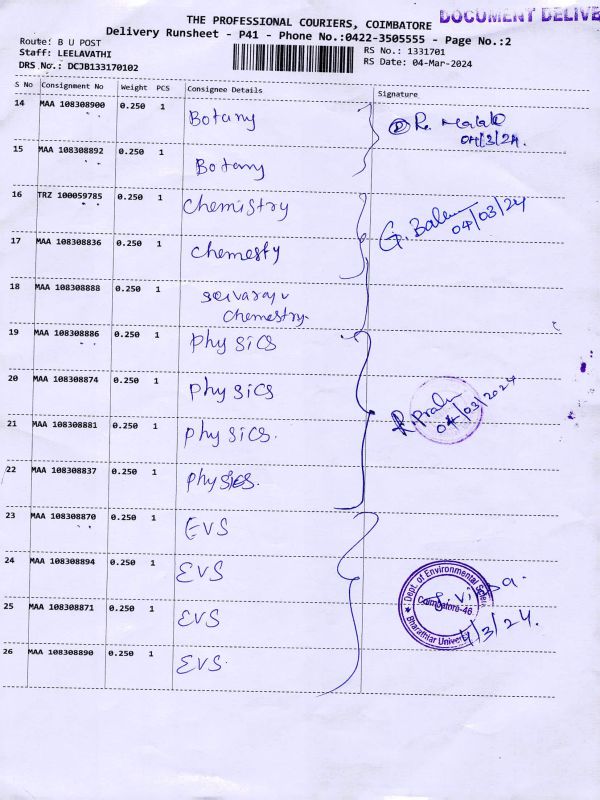 DOCUMENT DELIVE
THE PROFESSIONAL COURIERS, COIMBATORE
Delivery Runsheet - P41 - Phone No.:0422-3505555 - Page No.:2
Route: B U POST
Staff: LEELAVATHI
DRS No.: DCJB133170102
RS No.: 1331701
RS Date: 04-Mar-2024
S No Consignment No Weight PCS Consignee Details Signature
14 MAA 108308900 0.250 1 Botany
04/3/24.
15 MAA 108308892 0.250 1 Botany
16 TRZ 100059785 0.250 1 Chemistry
04/03/24
17 MAA 108308836 0.250 1 Chemesty
18 MAA 108308888 0.250 1
Chemestry.
19 MAA 108308886 0.250 1 Physics
20 MAA 108308874 0.250 1 Physics
04/03/2024
21 MAA 108308881 0.250 1 Physics.
22 MAA 108308837 0.250 1 Physics.
23 MAA 108308870 0.250 1 EVS
24 MAA 108308894 0.250 1 EVS
Dept. of Environmental Scien
Coimbatore-46
Bharathiar University
4/3/24.
25 MAA 108308871 0.250 1 EVS
26 MAA 108308890 0.250 1 EVS.